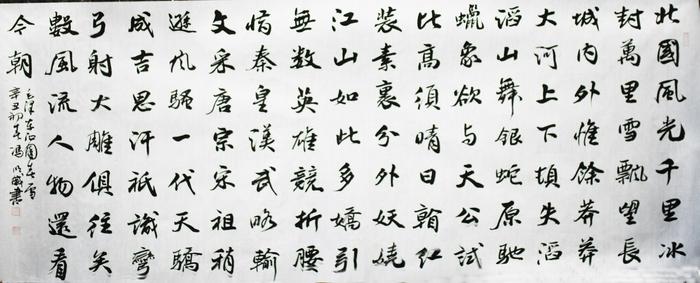 北國風光千里冰
封萬里雪飄望長
城內外惟餘莽莽
大河上下頓失滔
滔山舞銀蛇原馳
蠟象欲与天公試
比高須晴日翰紅
裝素裹分外妖嬈
江山如此多嬌引
無数英雄競折腰
惜秦皇漢武略輸
文采唐宗宋祖稍
遜風騷一代天驕
成吉思汗祇識彎
弓射大雕俱往矣
數風流人物還看
今朝
毛澤東沁園春雪
辛丑初春馮書